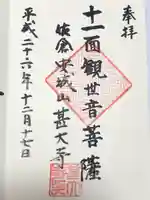 奉拝
十一面觀世音菩薩
佐倉 安城山 甚大寺
平成二十六年十二月十七日